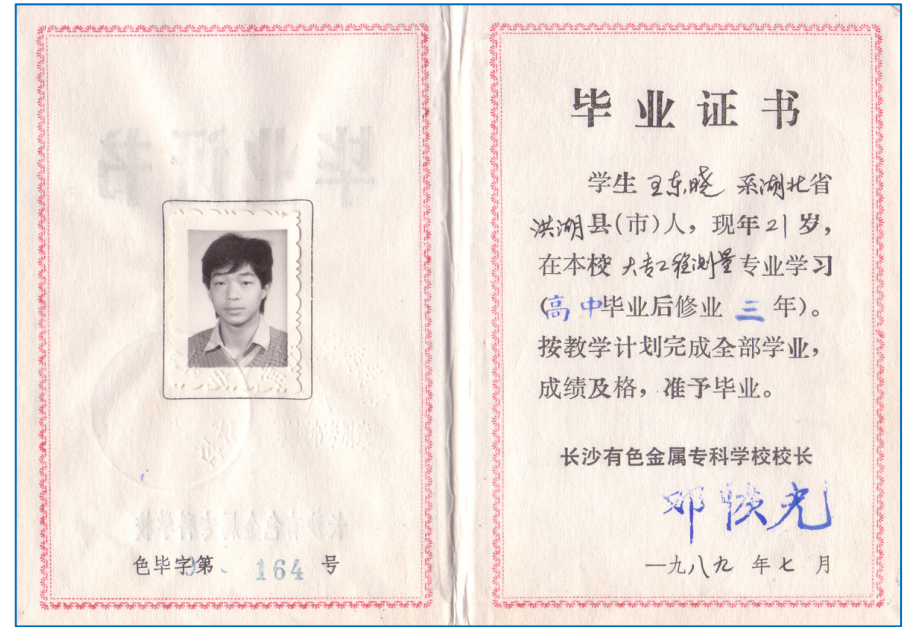 色毕字第 164 号
毕业证书
学生 王东晓 系湖北省
洪湖县(市)人，现年21岁，
在本校 大专工程测量专业学习
(高中毕业后修业 三 年)。
按教学计划完成全部学业，
成绩及格，准予毕业。
长沙有色金属专科学校校长
邓 光
一九八九 年 七 月